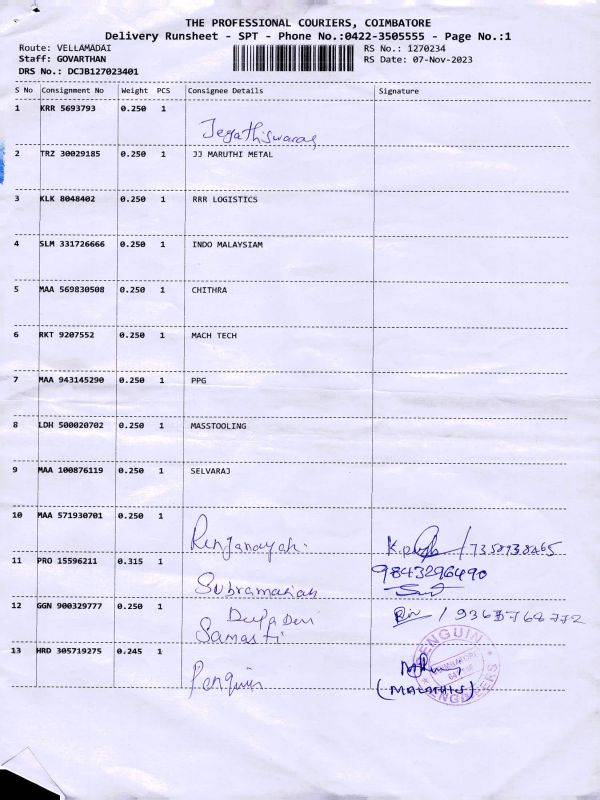 THE PROFESSIONAL COURIERS, COIMBATORE
Delivery Runsheet - SPT - Phone No.:0422-3505555 - Page No.:1
Route: VELLAMADAI RS No.: 1270234
Staff: GOVARTHAN RS Date: 07-Nov-2023
DRS No.: DCJB127023401
S No Consignment No Weight PCS Consignee Details Signature
1 KRR 5693793 0.250 1
2 TRZ 30029185 0.250 1 JJ MARUTHI METAL
3 KLK 8048402 0.250 1 RRR LOGISTICS
4 SLM 331726666 0.250 1 INDO MALAYSIAM
5 MAA 569830508 0.250 1 CHITHRA
6 RKT 9207552 0.250 1 MACH TECH
7 MAA 943145290 0.250 1 PPG
8 LDH 500020702 0.250 1 MASSTOOLING
9 MAA 100876119 0.250 1 SELVARAJ
10 MAA 571930701 0.250 1
11 PRO 15596211 0.315 1 9843296490
Subramanian
12 GGN 900329777 0.250 1
13 HRD 305719275 0.245 1 Penguin
PENGUIN ENGINEERS